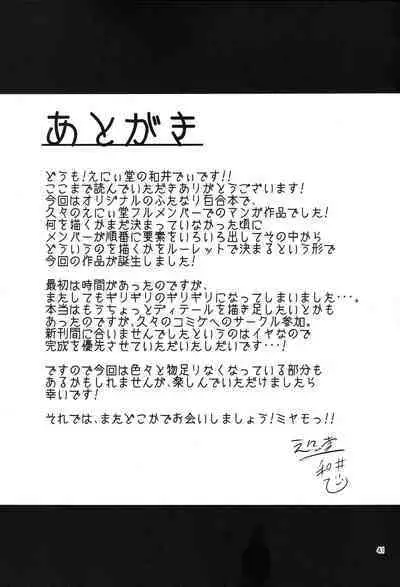 あとがき
どうも！えにぃ堂の和井でぃです！！
ここまで読んでいただきありがとうございます！
今回はオリジナルのふたなり百合本で、
久々のえにぃ堂フルメンバーでのマンガ作品でした！
何を描くかまだ決まっていなかった頃に
メンバーが順番に要素をいろいろ出してその中から
どういうのを描くかをルーレットで決まるという形で
今回の作品が誕生しました！
最初は時間があったのですが、
またしてもギリギリのギリギリになってしまいました・・・。
本当はもうちょっとディテールを描き足したいとかも
あったのですが、久々のコミケへのサークル参加。
新刊間に合いませんでしたというのはイヤなので
完成を優先させていただいたしだいです・・・！
ですので今回は色々と物足りなくなっている部分も
あるかもしれませんが、楽しんでいただけましたら
幸いです！
それでは、またどこかでお会いしましょう！ミヤモっ！！
和井